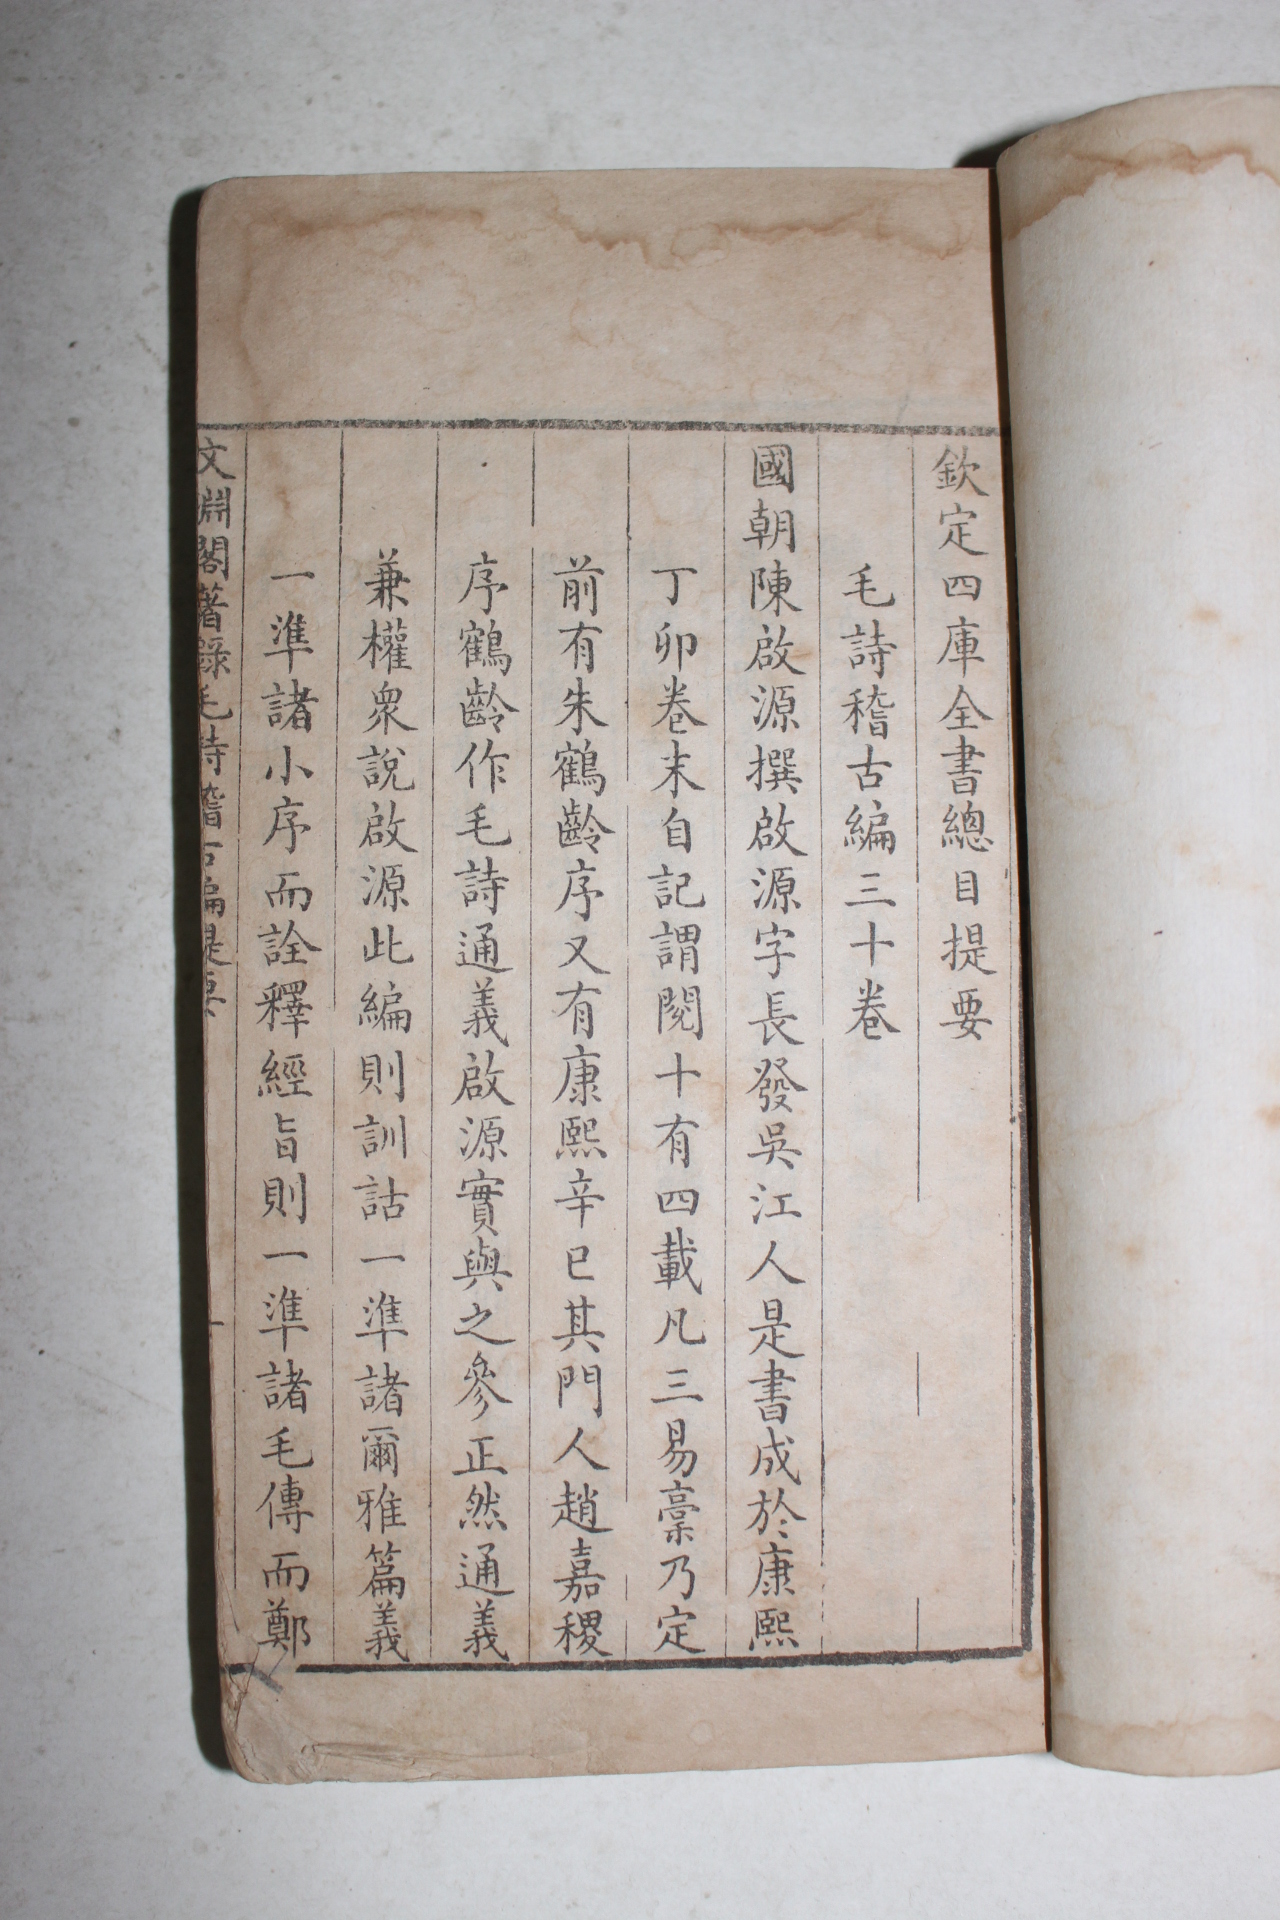 欽定四庫全書總目提要
毛詩稽古編三十卷
國朝陳啟源撰啟源字長發吳江人是書成於康熙
丁卯卷末自記謂閱十有四載凡三易稾乃定
前有朱鶴齡序又有康熙辛巳其門人趙嘉稷
序鶴齡作毛詩通義啟源實與之參正然通義
兼權衆說啟源此編則訓詁一準諸爾雅篇義
一準諸小序而詮釋經旨則一準諸毛傳而鄭
文淵閣著錄毛詩稽古編提要